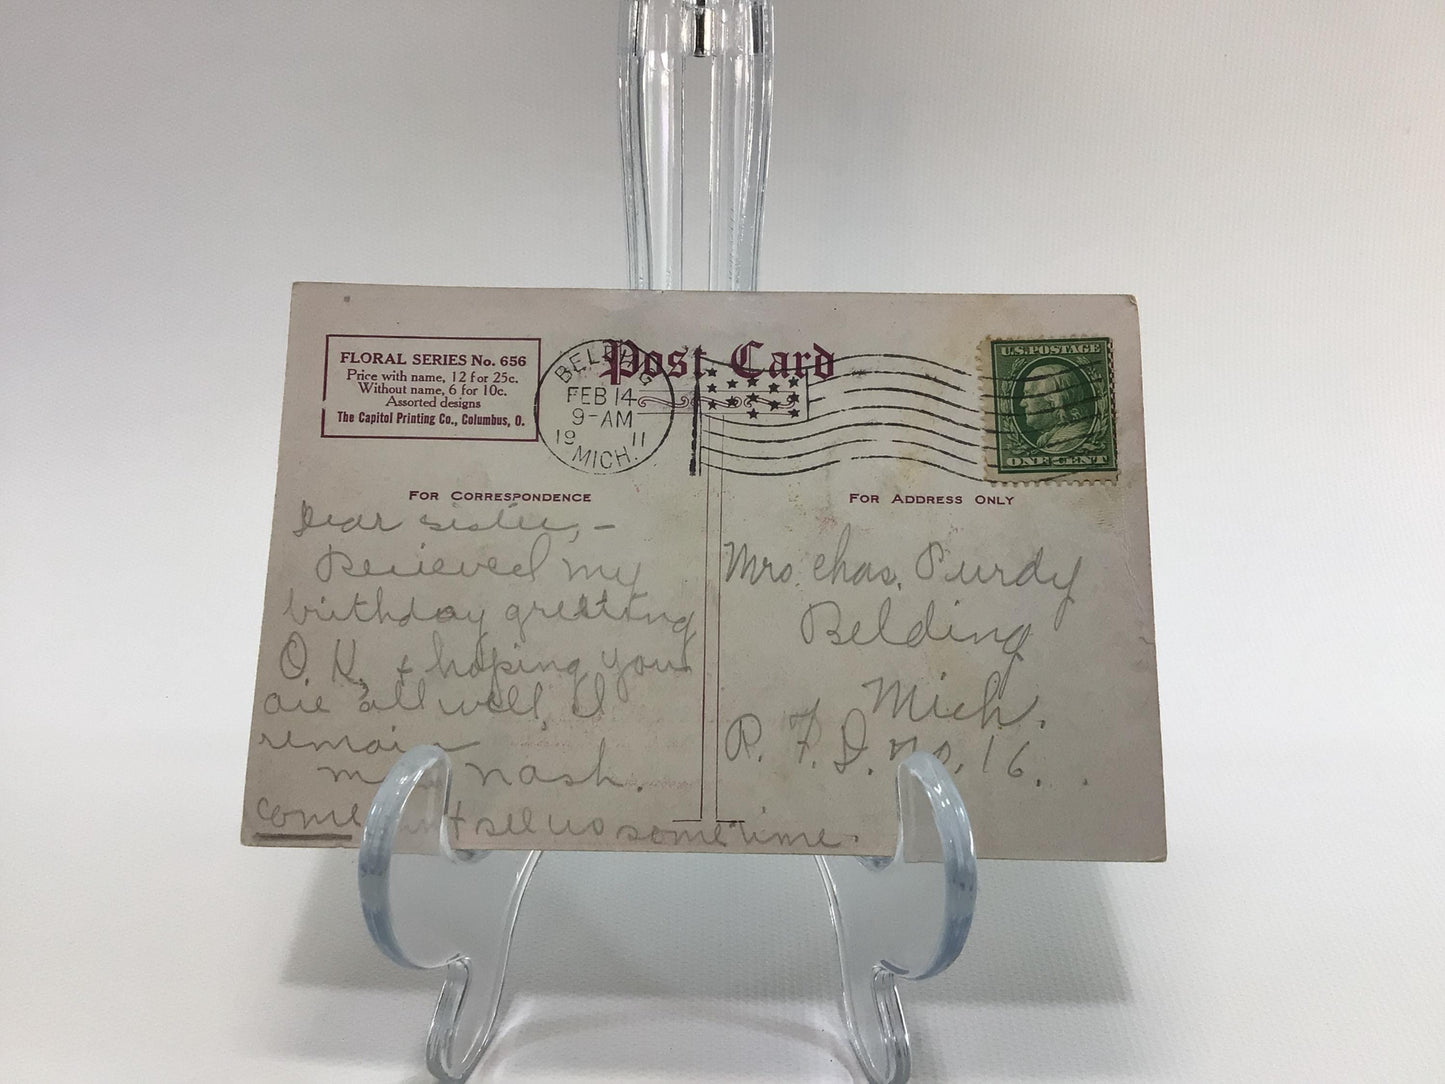 FLORAL SERIES No. 656
Price with name, 12 for 25c.
Without name, 6 for 10c.
Assorted designs
The Capitol Printing Co., Columbus, O.
Post Card
BELDING
FEB 14
9-AM
1911
MICH.
U.S. POSTAGE
ONE CENT
FOR CORRESPONDENCE
Dear sister,-
Recieved my
birthday greeting
O.K, & hoping you
are all well, I
remain
nash.
come see us sometime.
FOR ADDRESS ONLY
Mrs. Chas. Purdy
Belding
Mich.
R. F. D. no. 16.